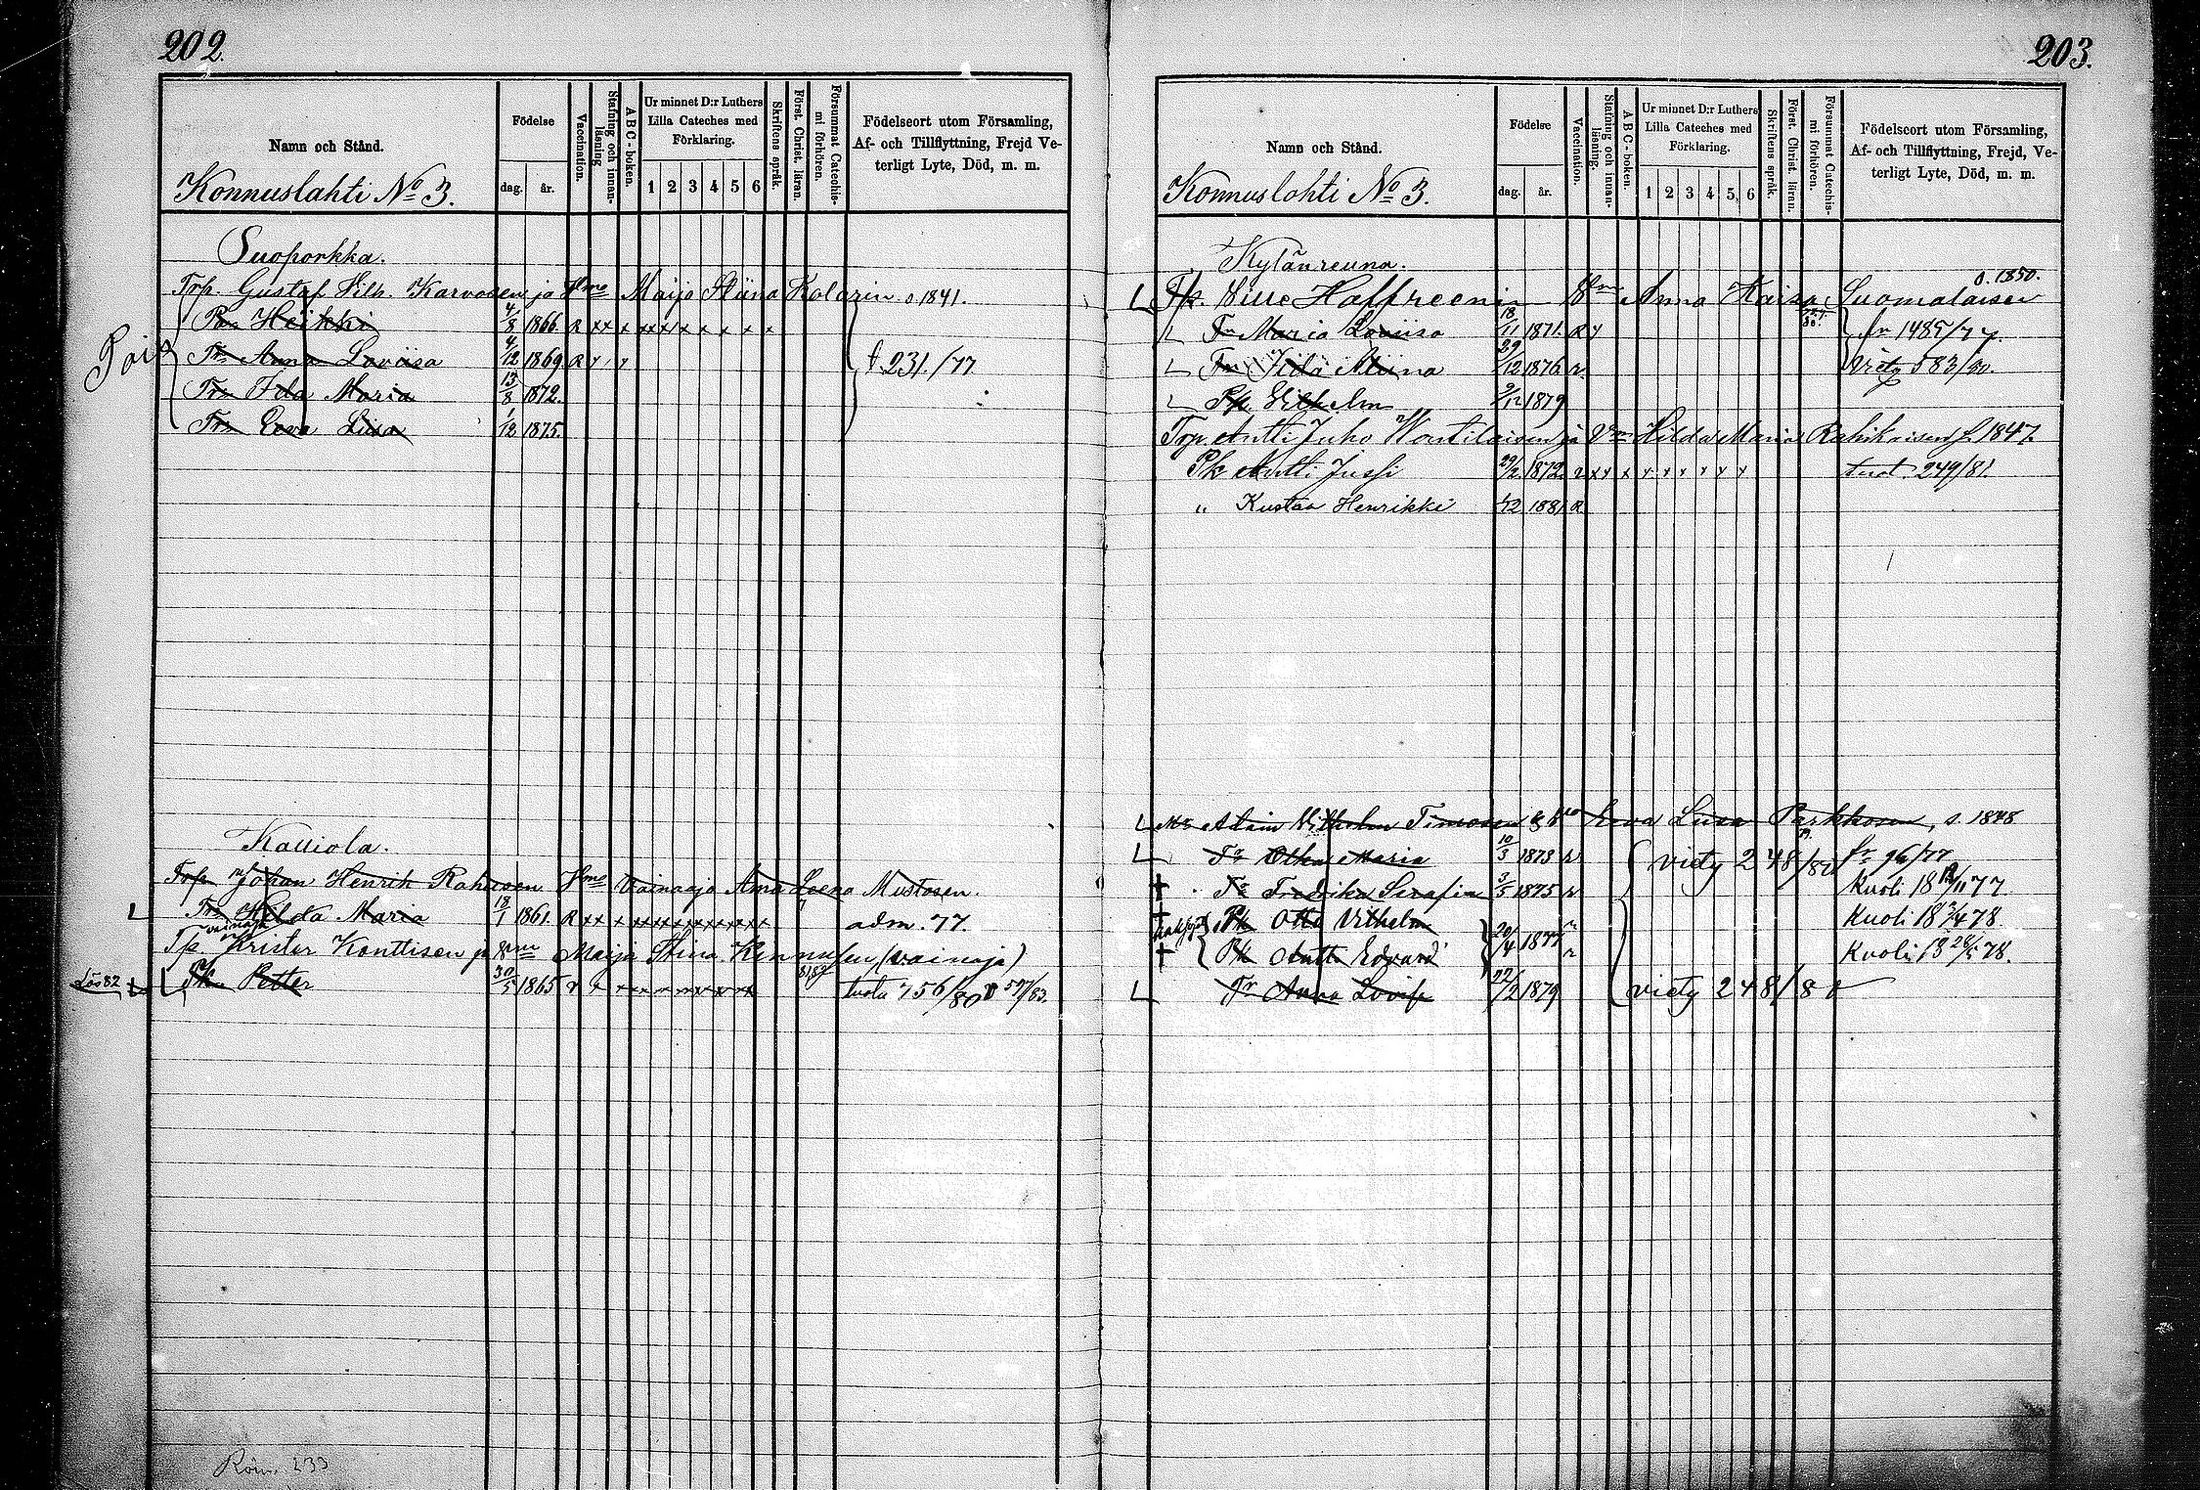 202.
Namn och Stånd.
Födelse
dag. år.
Vaccination.
Stafning och innan-läsning
ABC-boken.
Ur minnet D:r Luthers
Lilla Cateches med
Förklaring.
1 2 3 4 5 6
Skriftens språk.
Först. Christ. läran.
Försummat Catechis-mi förhören.
Födelseort utom Församling,
Af- och Tillflyttning, Frejd Ve-
terligt Lyte, Död, m. m.
Konnuslahti No 3.
Suoporkka.
Trp. Gustaf Vilh. Karvosen ja Vmo Maija Stiina Kolarin s. 1841.
Heikki 4/8 1866. R xx x xx x x x x x x
Pois
Tr. Anna Loviisa 4/12 1869 R
231/77
Tr. Ida Maria 13/8 1872.
Tr. Eeva Liisa 1/12 1875.
Kalliola.
Trp. Johan Henrik Rahusen Vmo Vainaaja Anna Leena Mustosen.
L Tr. Hilda Maria 18/1 1861. R xx x xxxxxxxxxx adm. 77.
vainaja
Tp. Krister Konttisen ja Vmo Maija Stina Kinnusen (vainaja)
Lös 82 L Pk. Petter 30/5 1865 756/80 527/83.
233
203.
Namn och Stånd.
Födelse
dag. år.
Vaccination.
Stafning och innan-läsning.
ABC-boken.
Ur minnet D:r Luthers
Lilla Cateches med
Förklaring.
1 2 3 4 5 6
Skriftens språk.
Först. Christ. läran.
Försummat Catechis-mi förhören.
Födelseort utom Församling,
Af- och Tillflyttning, Frejd, Ve-
terligt Lyte, Död, m. m.
Konnuslahti No 3.
Kylänreuna.
s. 1850.
L Tp. Ville Hoffreenin Vmo Anna Kaisa Suomalaisen
L Tr Maria Loviisa 18/11 1871. R fr 1485/77.
L Tr Iida Stiina 29/12 1876 r. viety 583/80.
L Pk. Vilhelm 9/12 1879
Trp. Antti Juho Woutilaisen ja Vm Hilda Maria Rahikaisen f. 1847.
Pk Antti Jussi 29/2 1872 r xx x x x x x x x tuot. 249/81.
" Kustaa Henrikki 1/12 1881 R
L Mr Adam Vilhelm Timosen & Vmo Eeva Liisa Parkkosen, s. 1848
L Tr Olka Maria 10/3 1873 r viety 248/80 fr 96/77
+ Tr Fredrika Serafia 3/5 1875 r Kuoli 18 12/11 77.
+ Pk Otto Vilhelm 20/4 1877 r Kuoli 18 3/4 78.
+ Pk Antti Edvard r Kuoli 18 28/5 78.
L Tr Anna Lovis 22/2 1879 viety 248/80